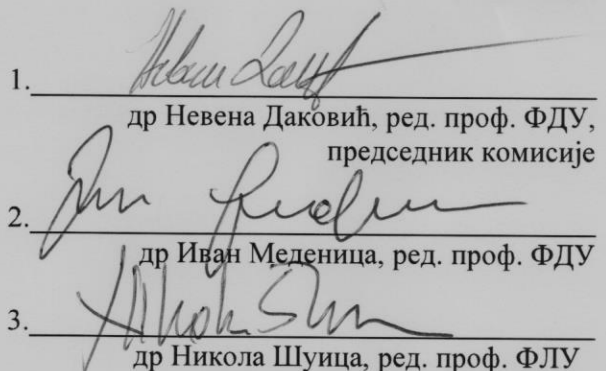 1.
др Невена Даковић, ред. проф. ФДУ,
председник комисије
2.
др Иван Меденица, ред. проф. ФДУ
3.
др Никола Шуица, ред. проф. ФЛУ